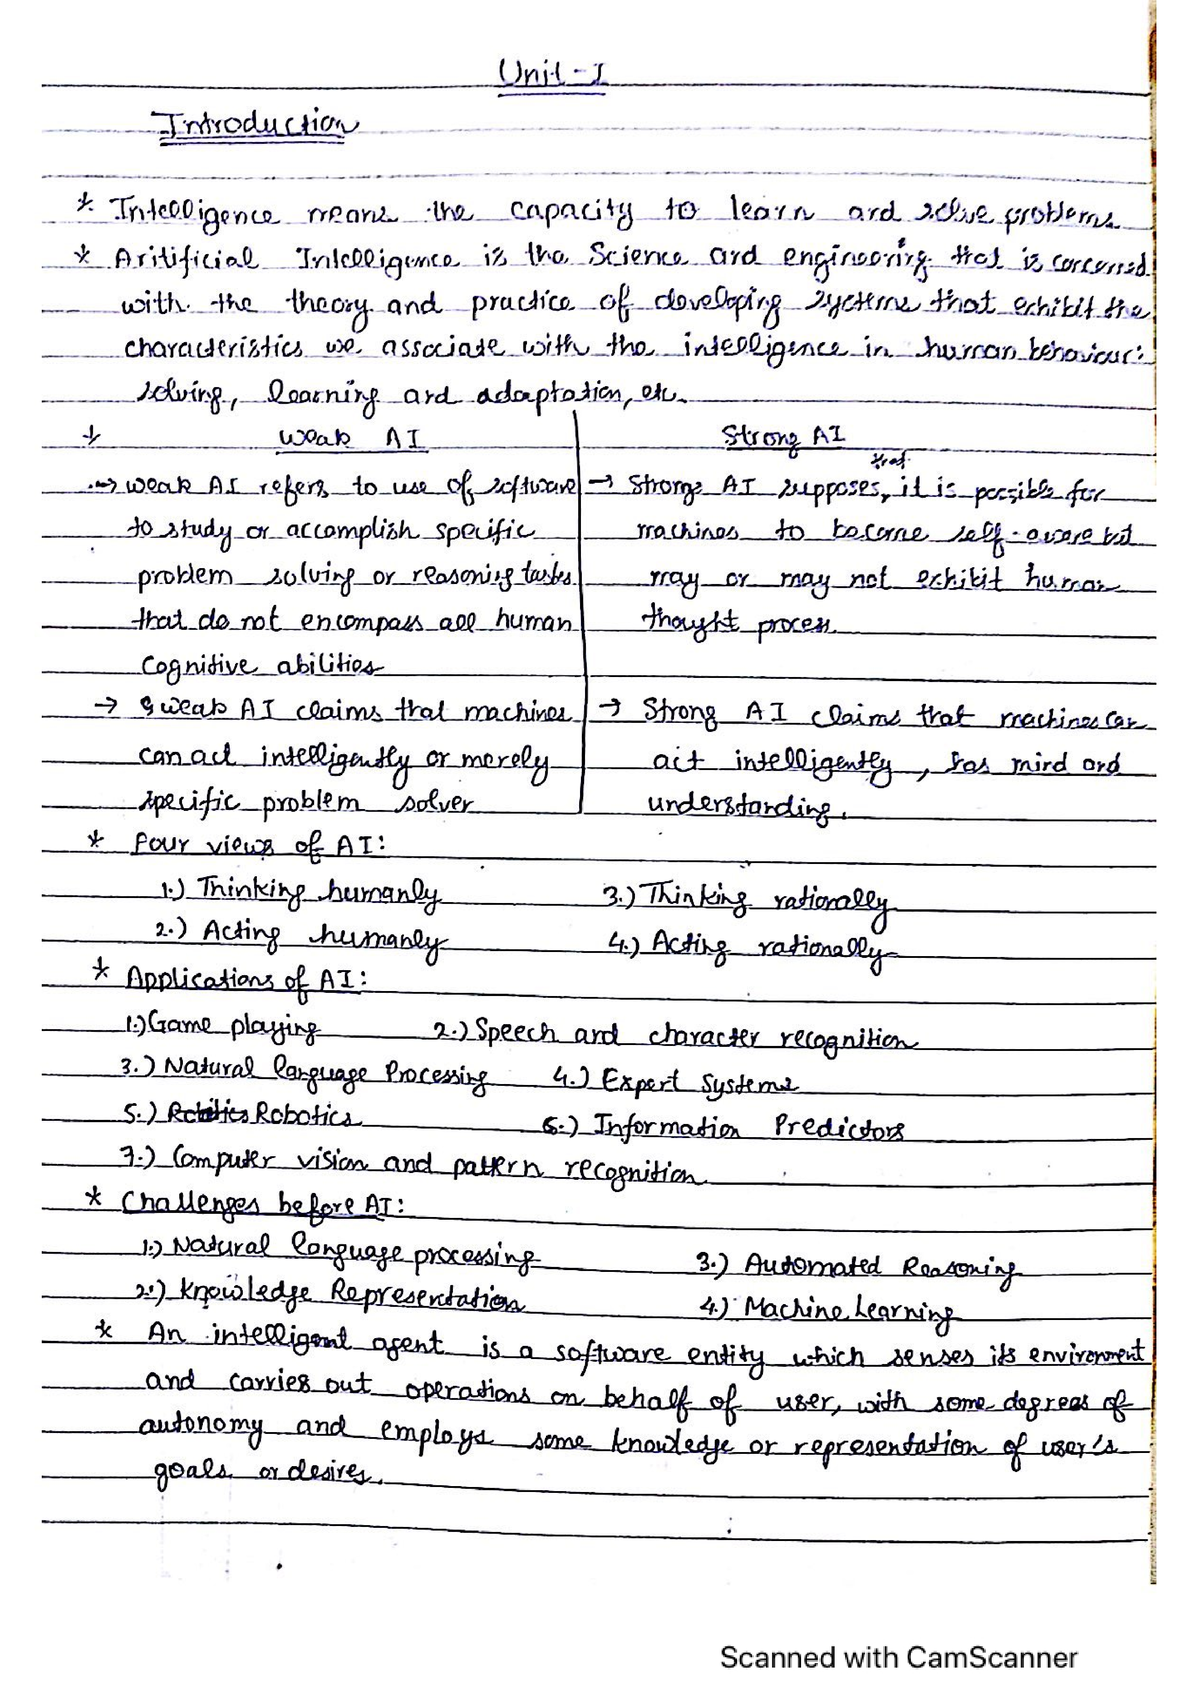 Unit-I
Introduction
* Intelligence means the capacity to learn and solve problems.
* Aritificial Intelligence is the Science and engineering that is concerned
with the theory and practice of developing systems that exhibit the
characteristics we associate with the intelligence in human behaviour:
solving, learning and adaptation, etc.
* Weak AI
→ Weak AI refers to use of software
to study or accomplish specific
problem solving or reasoning tasks
that do not encompass all human
Cognitive abilities
→ Weak AI claims that machines
can act intelligently or merely
specific problem solver
Strong AI
→ Strong AI supposes, that it is possible for
machines to become self-aware but
may or may not exhibit human
thought process.
→ Strong AI claims that machines can
act intelligently, has mind and
understanding.
* Four views of AI:
1.) Thinking humanly 3.) Thinking rationally
2.) Acting humanly 4.) Acting rationally
* Applications of AI:
1.) Game playing 2.) Speech and character recognition
3.) Natural language Processing 4.) Expert Systems
5.) Robotics 6.) Information Predictors
7.) Computer vision and pattern recognition
* Challenges before AI:
1.) Natural language processing 3.) Automated Reasoning
2.) Knowledge Representation 4.) Machine Learning
* An intelligent agent is a software entity which senses its environment
and carries out operations on behalf of user, with some degrees of
autonomy and employs some knowledge or representation of user's
goals or desires.
Scanned with CamScanner